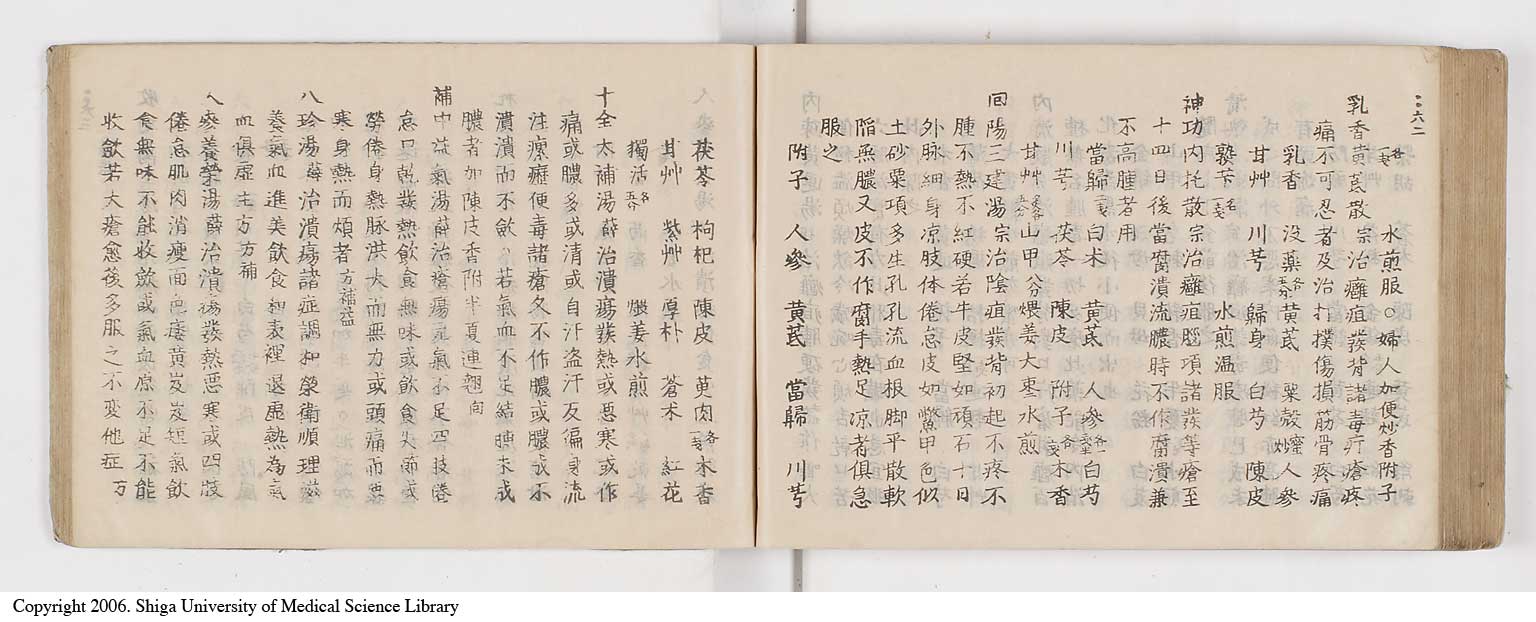 二六二
水煎服○婦人加便炒香附子
乳香黄芪散宗治癰疽發背諸毒疔瘡疼
痛不可忍者及治打撲傷損筋骨疼痛
乳香 没藥 黄芪 粟殼 人參
甘艸 川芎 歸身 白芍 陳皮
水煎温服
神功内托散宗治癰疽腦項諸發等瘡至
十四日後當腐潰流膿時不作腐潰兼
不高腫者用
當歸 白朮 黄芪 人參 白芍
川芎 茯苓 陳皮 附子 木香
甘艸 山甲 煨姜大棗水煎
回陽三建湯宗治陰疽發背初起不疼不
腫不熱不紅硬若牛皮堅如頑石十日
外脉細身凉肢体倦怠皮如鱉甲色似
土砂粟項多生孔孔流血根脚平散軟
陷無膿又皮不作腐手熱足凉者俱急
服之
附子 人參 黄芪 當歸 川芎
茯苓 枸杞 陳皮 萸肉 木香
甘艸 紫艸 厚朴 蒼朮 紅花
獨活 煨姜水煎
十全大補湯薛治潰瘍發熱或惡寒或作
痛或膿多或清或自汗盗汗及徧身流
注瘰癧便毒諸瘡久不作膿或膿成不
潰潰而不歛 若氣血不足結腫未成
膿者加陳皮香附半夏連翹
補中益氣湯薛治瘡瘍元氣不足四肢倦
怠口乾發熱飲食無味或飲食失節或
勞倦身熱脉洪大而無力或頭痛而惡
寒身熱而煩者 方補益
八珍湯薛治潰瘍諸症調和榮衛順理滋
養氣血進美飲食和表裡退虚熱為氣
血俱虚主方方補
人參養榮湯薛治潰瘍發熱惡寒或四肢
倦怠肌肉消瘦面色痿黄岌岌短氣飲
食無味不能收歛或氣血原不足不能
收歛若大瘡愈後多服之不変他症 方
Copyright 2006. Shiga University of Medical Science Library